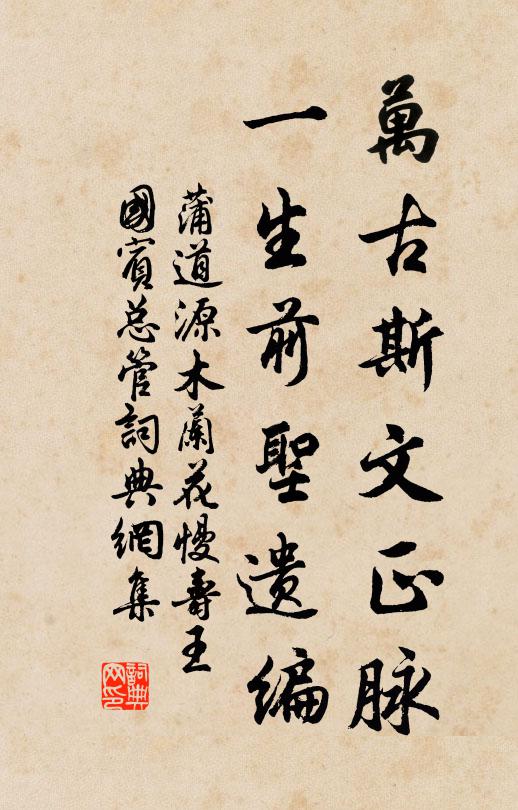 萬古斯文正脉
一生前聖遺编
蒲道源木蘭花慢壽王
國賓总管詞典網集
詞典網印